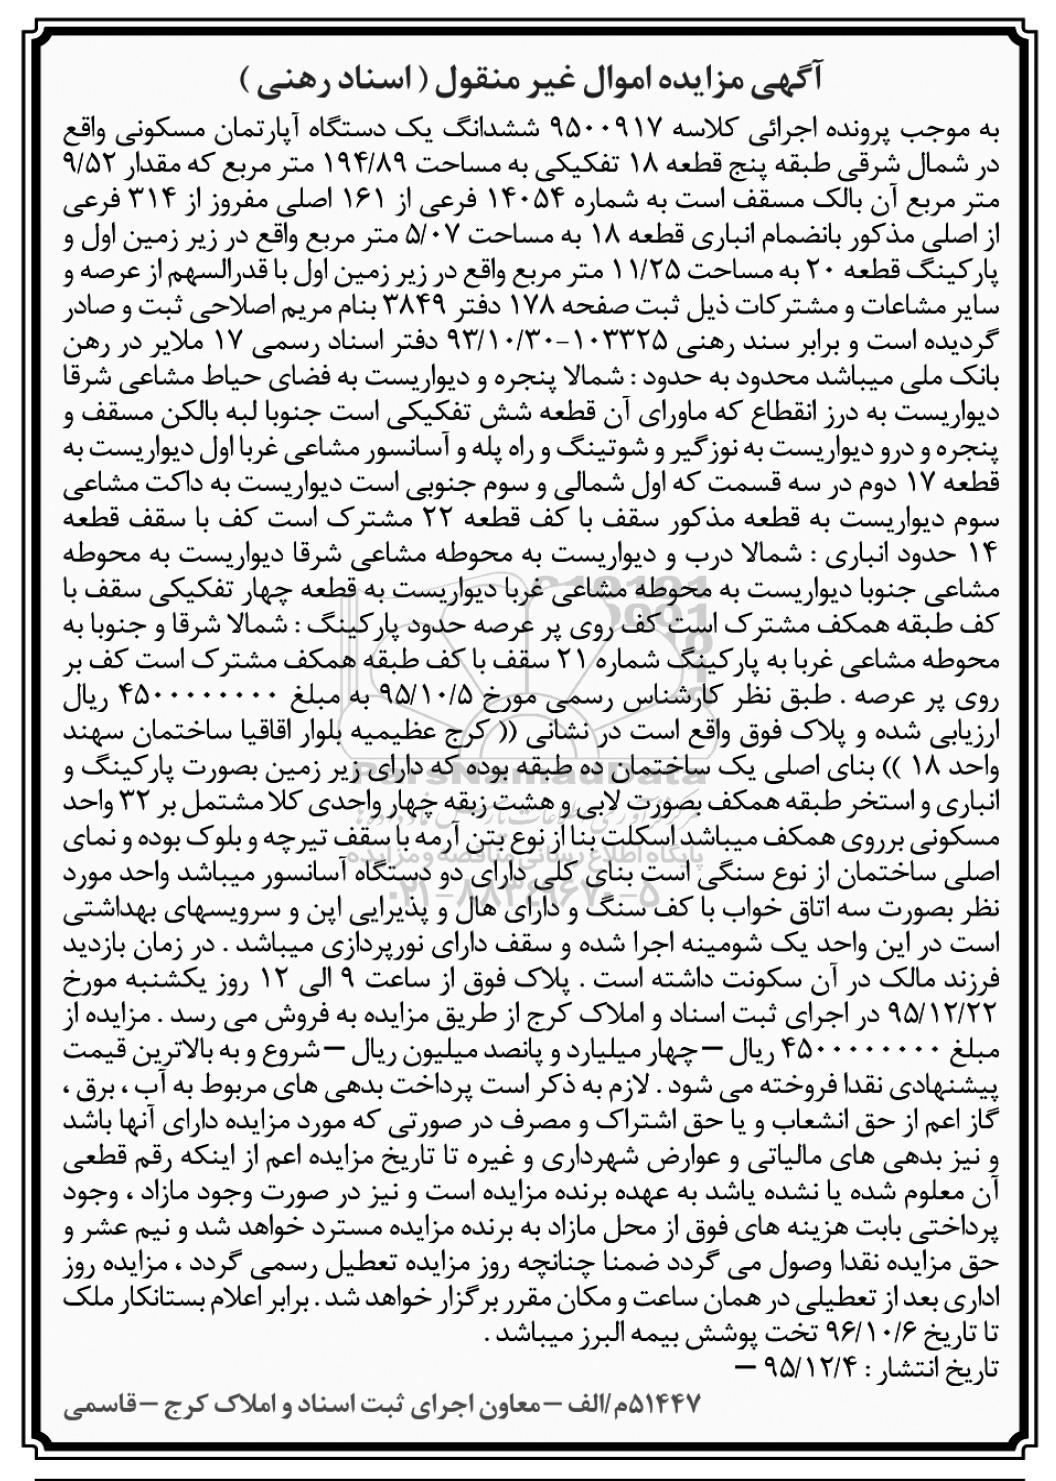 آگهی مزایده اموال غیر منقول ( اسناد رهنی )
به موجب پرونده اجرائی کلاسه ۹۵۰۰۹۱۷ ششدانگ یک دستگاه آپارتمان مسکونی واقع
در شمال شرقی طبقه پنج قطعه ۱۸ تفکیکی به مساحت ۱۹۴/۸۹ متر مربع که مقدار ۹/۵۲
متر مربع آن بالک مسقف است به شماره ۱۴۰۵۴ فرعی از ۱۶۱ اصلی مفروز از ۳۱۴ فرعی
از اصلی مذکور بانضمام انباری قطعه ۱۸ به مساحت ۵/۰۷ متر مربع واقع در زیر زمین اول و
پارکینگ قطعه ۲۰ به مساحت ۱۱/۲۵ متر مربع واقع در زیر زمین اول با قدرالسهم از عرصه و
سایر مشاعات و مشترکات ذیل ثبت صفحه ۱۷۸ دفتر ۳۸۴۹ بنام مریم اصلاحی ثبت و صادر
گردیده است و برابر سند رهنی ۱۰۳۳۲۵-۹۳/۱۰/۳۰ دفتر اسناد رسمی ۱۷ ملایر در رهن
بانک ملی میباشد محدود به حدود : شمالا پنجره و دیواریست به فضای حیاط مشاعی شرقا
دیواریست به درز انقطاع که ماورای آن قطعه شش تفکیکی است جنوبا لبه بالکن مسقف و
پنجره و درو دیواریست به نوزگیر و شوتینگ و راه پله و آسانسور مشاعی غربا اول دیواریست به
قطعه ۱۷ دوم در سه قسمت که اول شمالی و سوم جنوبی است دیواریست به داکت مشاعی
سوم دیواریست به قطعه مذکور سقف با کف قطعه ۲۲ مشترک است کف با سقف قطعه
۱۴ حدود انباری : شمالا درب و دیواریست به محوطه مشاعی شرقا دیواریست به محوطه
مشاعی جنوبا دیواریست به محوطه مشاعی غربا دیواریست به قطعه چهار تفکیکی سقف با
کف طبقه همکف مشترک است کف روی پر عرصه حدود پارکینگ : شمالا شرقا و جنوبا به
محوطه مشاعی غربا به پارکینگ شماره ۲۱ سقف با کف طبقه همکف مشترک است کف بر
روی پر عرصه . طبق نظر کارشناس رسمی مورخ ۹۵/۱۰/۵ به مبلغ ۴۵۰۰۰۰۰۰۰۰ ریال
ارزیابی شده و پلاک فوق واقع است در نشانی (( کرج عظیمیه بلوار اقاقیا ساختمان سهند
واحد ۱۸ )) بنای اصلی یک ساختمان ده طبقه بوده که دارای زیر زمین بصورت پارکینگ و
انباری و استخر طبقه همکف بصورت لابی و هشت زبقه چهار واحدی کلا مشتمل بر ۳۲ واحد
مسکونی برروی همکف میباشد اسکلت بنا از نوع بتن آرمه با سقف تیرچه و بلوک بوده و نمای
اصلی ساختمان از نوع سنگی است بنای کلی دارای دو دستگاه آسانسور میباشد واحد مورد
نظر بصورت سه اتاق خواب با کف سنگ و دارای هال و پذیرایی اپن و سرویسهای بهداشتی
است در این واحد یک شومینه اجرا شده و سقف دارای نورپردازی میباشد . در زمان بازدید
فرزند مالک در آن سکونت داشته است . پلاک فوق از ساعت ۹ الی ۱۲ روز یکشنبه مورخ
۹۵/۱۲/۲۲ در اجرای ثبت اسناد و املاک کرج از طریق مزایده به فروش می رسد . مزایده از
مبلغ ۴۵۰۰۰۰۰۰۰۰ ریال –چهار میلیارد و پانصد میلیون ریال –شروع و به بالاترین قیمت
پیشنهادی نقدا فروخته می شود . لازم به ذکر است پرداخت بدهی های مربوط به آب ، برق ،
گاز اعم از حق انشعاب و یا حق اشتراک و مصرف در صورتی که مورد مزایده دارای آنها باشد
و نیز بدهی های مالیاتی و عوارض شهرداری و غیره تا تاریخ مزایده اعم از اینکه رقم قطعی
آن معلوم شده یا نشده یاشد به عهده برنده مزایده است و نیز در صورت وجود مازاد ، وجود
پرداختی بابت هزینه های فوق از محل مازاد به برنده مزایده مسترد خواهد شد و نیم عشر و
حق مزایده نقدا وصول می گردد ضمنا چنانچه روز مزایده تعطیل رسمی گردد ، مزایده روز
اداری بعد از تعطیلی در همان ساعت و مکان مقرر برگزار خواهد شد . برابر اعلام بستانکار ملک
تا تاریخ ۹۶/۱۰/۶ تخت پوشش بیمه البرز میباشد .
تاریخ انتشار : ۹۵/۱۲/۴ –
۵۱۴۴۷م/الف –معاون اجرای ثبت اسناد و املاک کرج –قاسمی
ParsNamadData
پایگاه اطلاع رسانی مناقصه و مزایده
۰۲۱-۸۸۳٤۹٦۷۰-۵